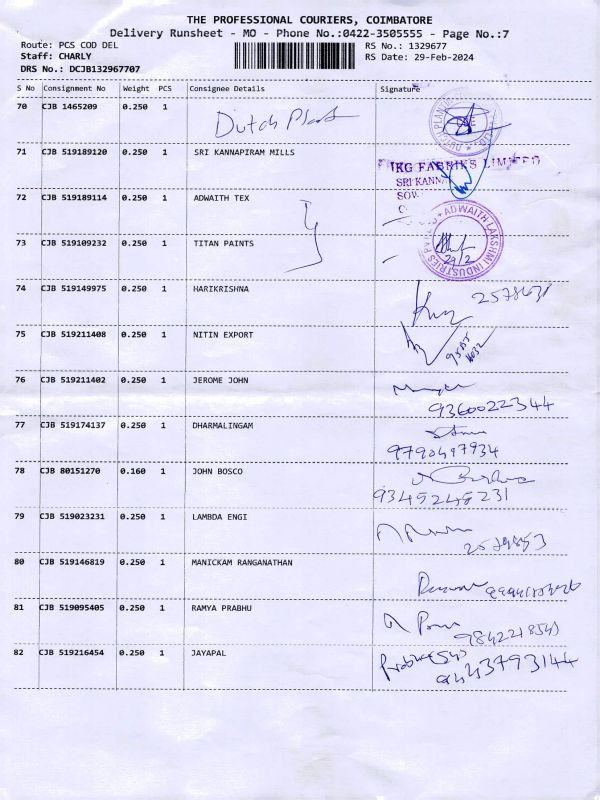 THE PROFESSIONAL COURIERS, COIMBATORE
Delivery Runsheet - MO - Phone No.:0422-3505555 - Page No.:7
Route: PCS COD DEL RS No.: 1329677
Staff: CHARLY RS Date: 29-Feb-2024
DRS No.: DCJB132967707
S No Consignment No Weight PCS Consignee Details Signature
70 CJB 1465209 0.250 1 Dutch
71 CJB 519189120 0.250 1 SRI KANNAPIRAM MILLS
KG FABRIKS LIMITED
72 CJB 519189114 0.250 1 ADWAITH TEX
ADWAITH LAKSHMI INDUSTRIES
73 CJB 519109232 0.250 1 TITAN PAINTS
29/2
74 CJB 519149975 0.250 1 HARIKRISHNA
75 CJB 519211408 0.250 1 NITIN EXPORT
76 CJB 519211402 0.250 1 JEROME JOHN
9360022344
77 CJB 519174137 0.250 1 DHARMALINGAM
9790497934
78 CJB 80151270 0.160 1 JOHN BOSCO
9345248231
79 CJB 519023231 0.250 1 LAMBDA ENGI
80 CJB 519146819 0.250 1 MANICKAM RANGANATHAN
81 CJB 519095405 0.250 1 RAMYA PRABHU
82 CJB 519216454 0.250 1 JAYAPAL
9443793144